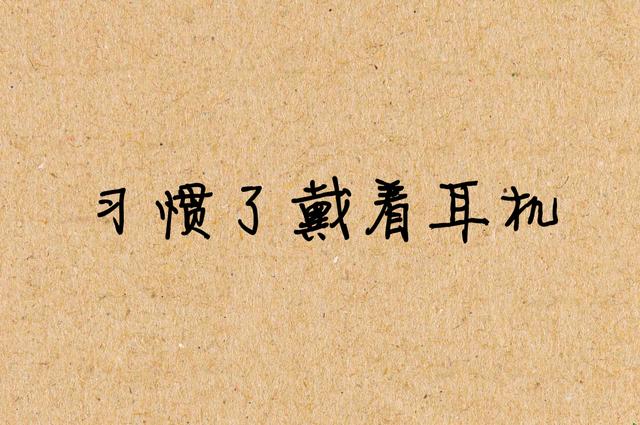 习惯了戴着耳机